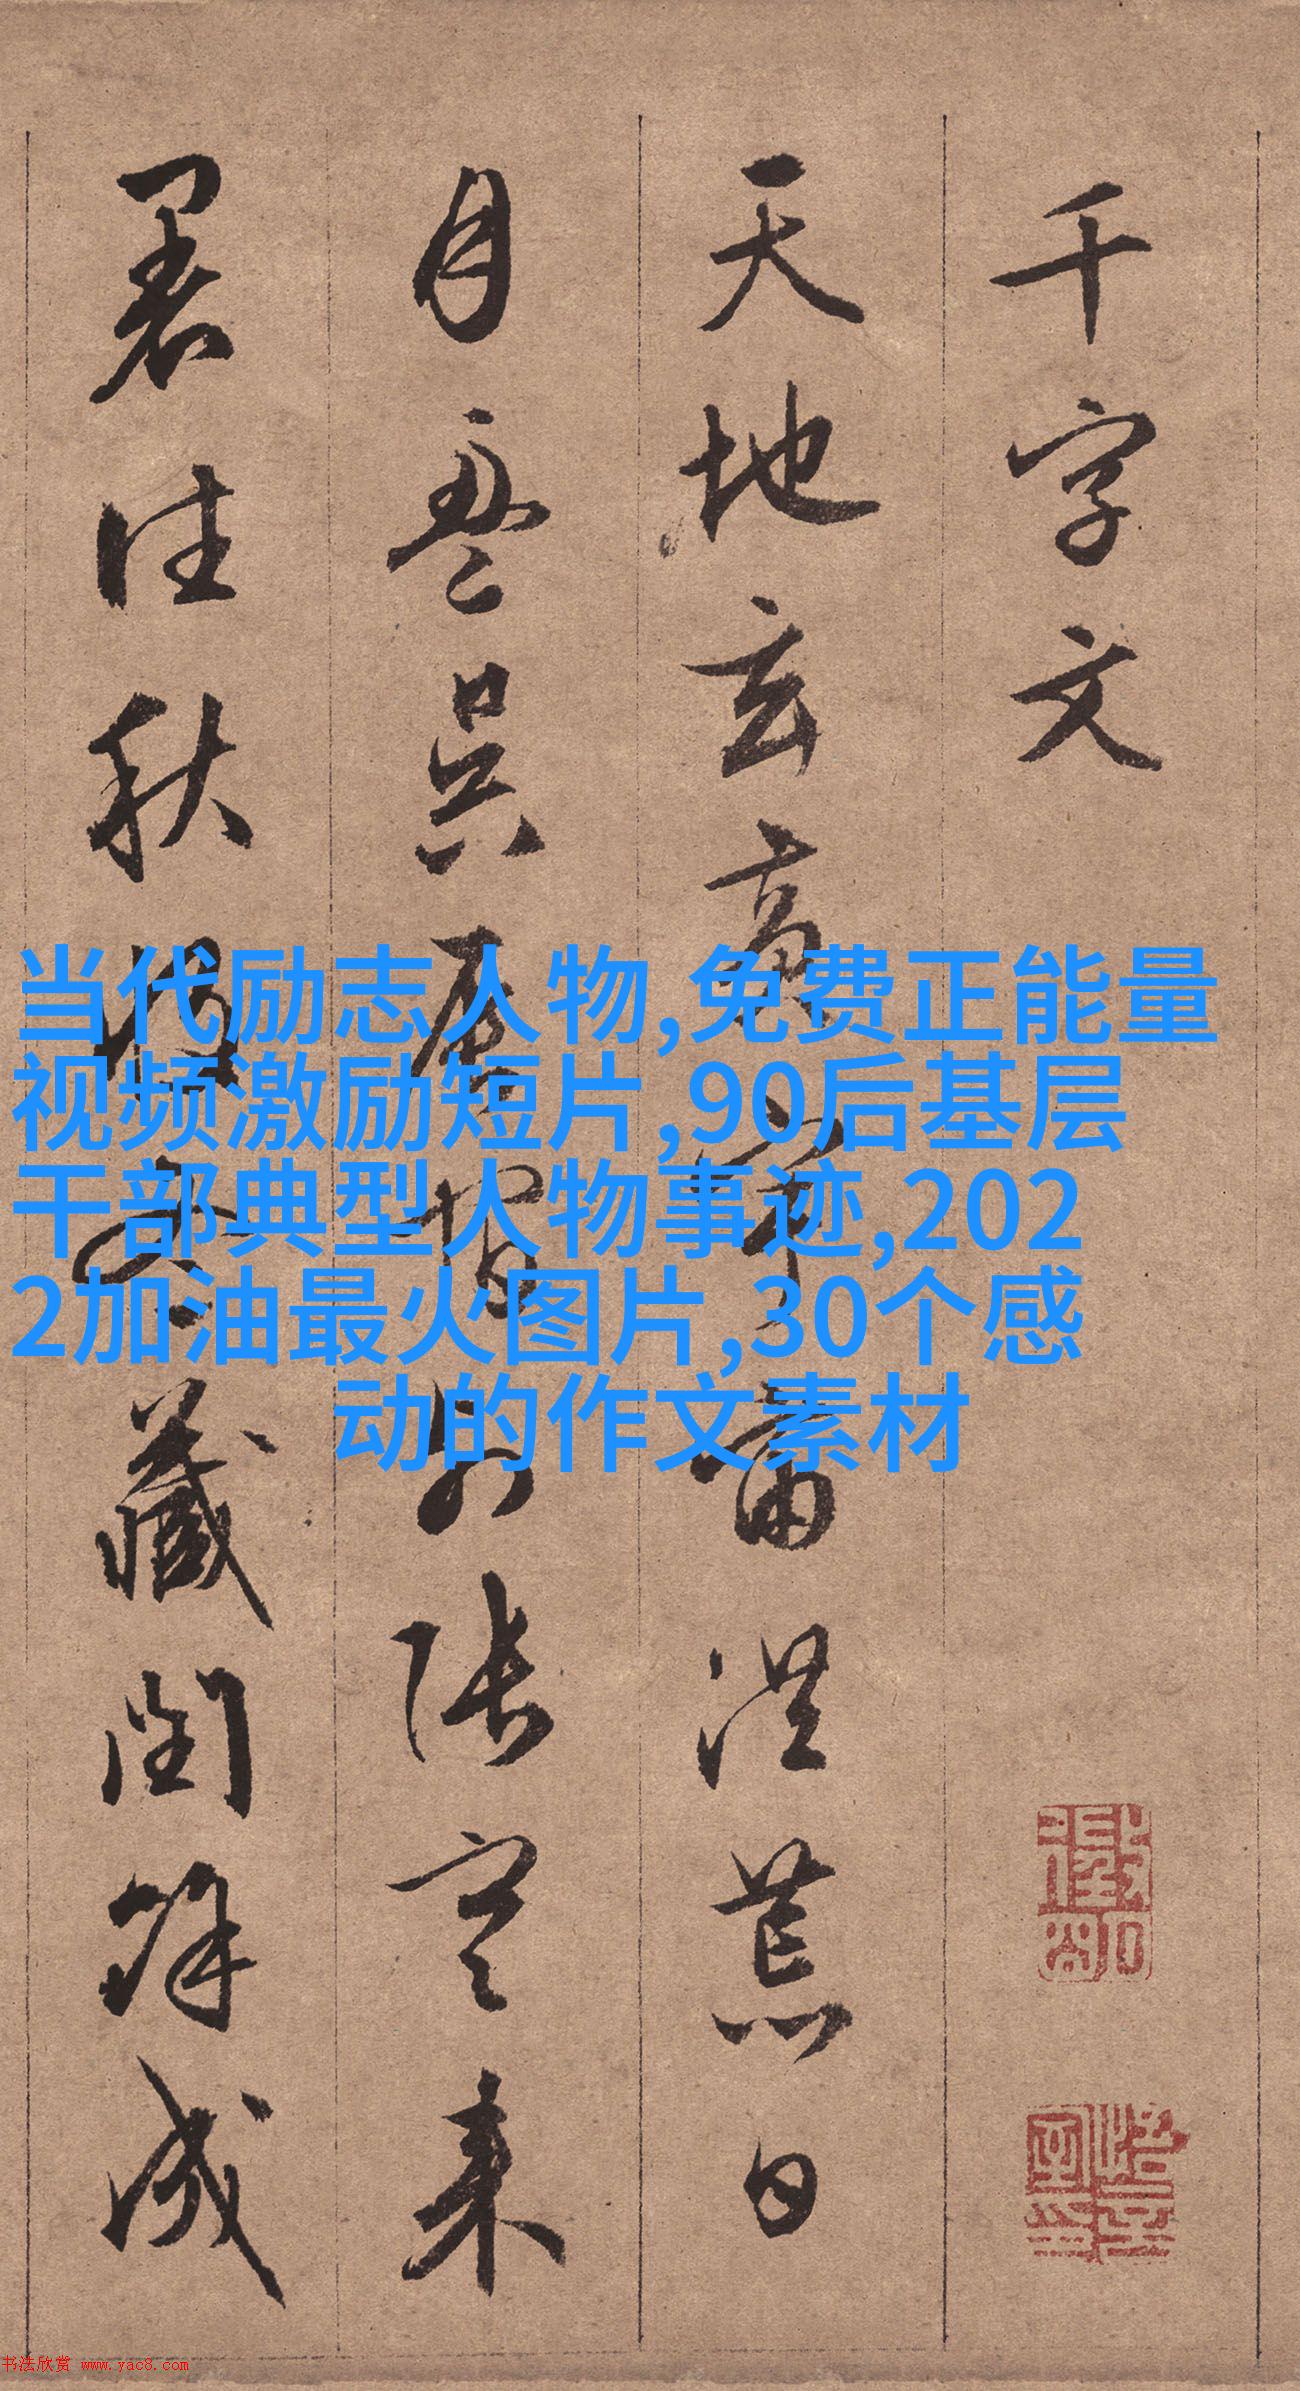 千字文
天地玄黄宇宙洪荒日
月盈昃辰宿列张寒来
暑往秋收冬藏闰余成
当代励志人物,免费正能量
视频激励短片,90后基层
干部典型人物事迹,202
2加油最火图片,30个感
动的作文素材
书法欣赏 www.yac8.com